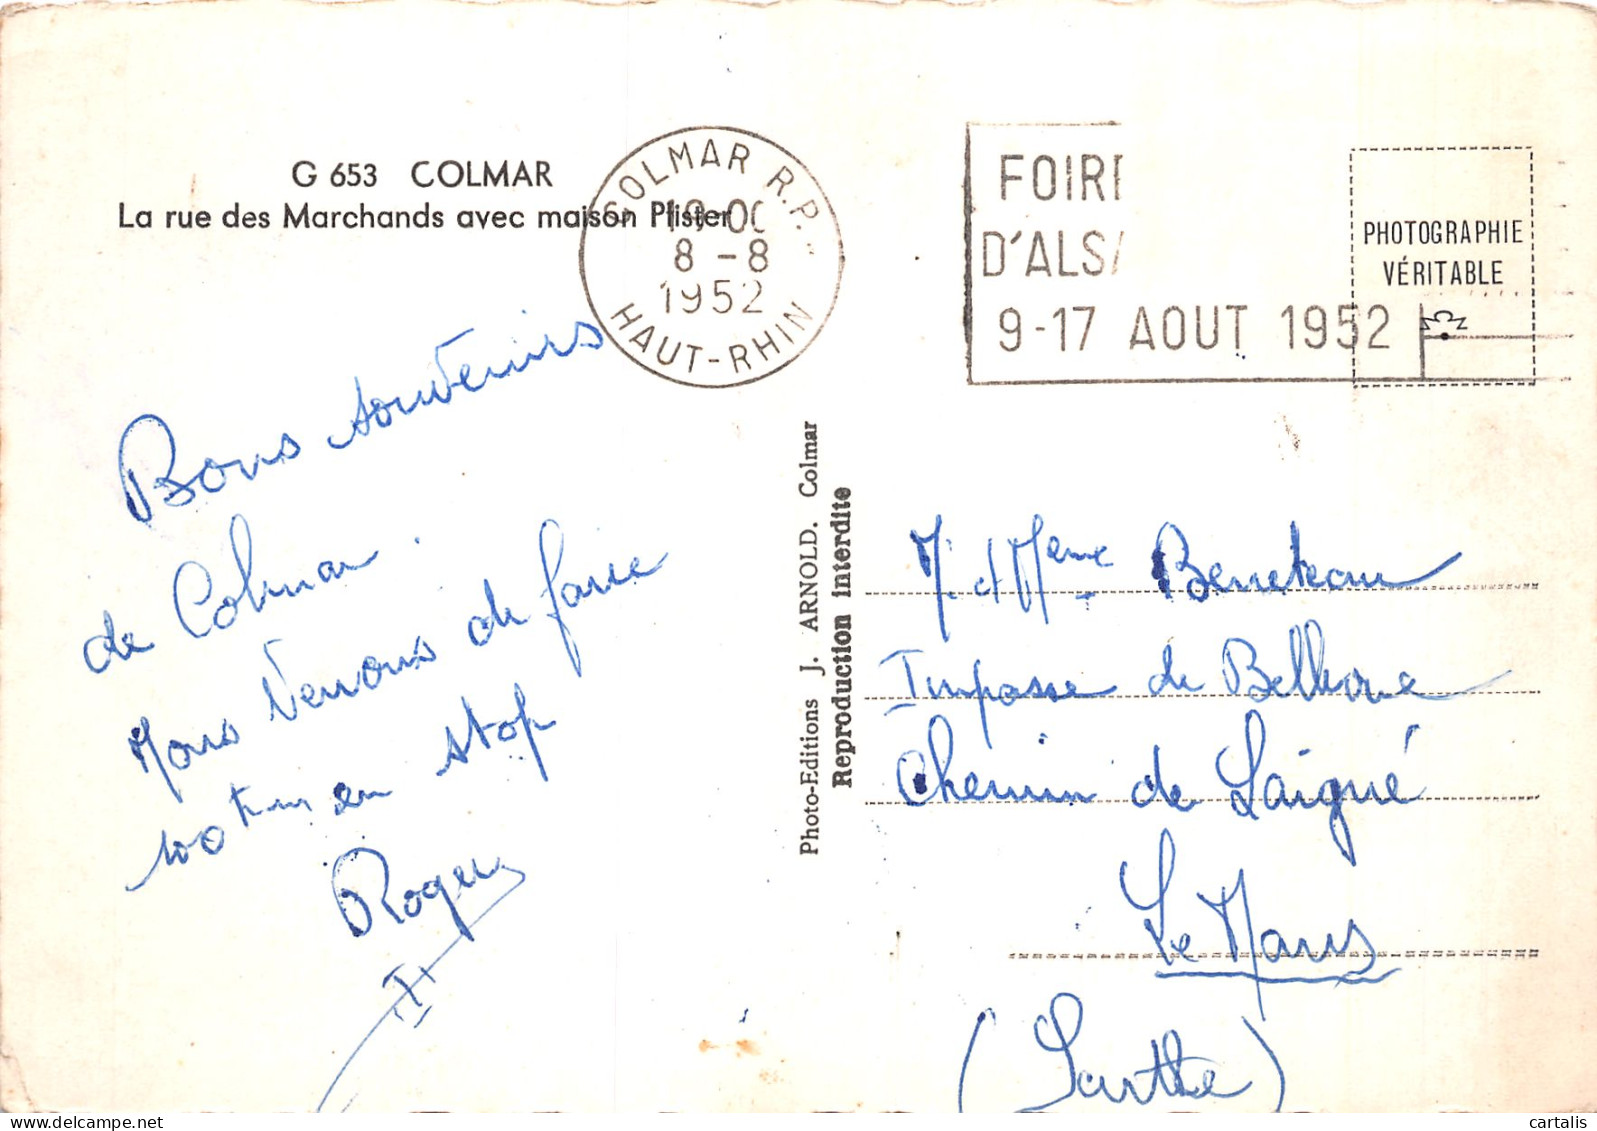 G 653 COLMAR
La rue des Marchands avec maison Pfister
COLMAR R.P.
8 - 8
1952
HAUT-RHIN
FOIRE
D'ALSA
9-17 AOUT 1952
PHOTOGRAPHIE
VÉRITABLE
Bons souvenirs
de Colmar.
Nous venons de faire
100 km en stop
Roger
Photo-Editions J. ARNOLD. Colmar
Reproduction interdite
M. et Mme Beneteau
Impasse de Bellevue
Chemin de Laigné
Le Mans
(Sarthe)
cartalis